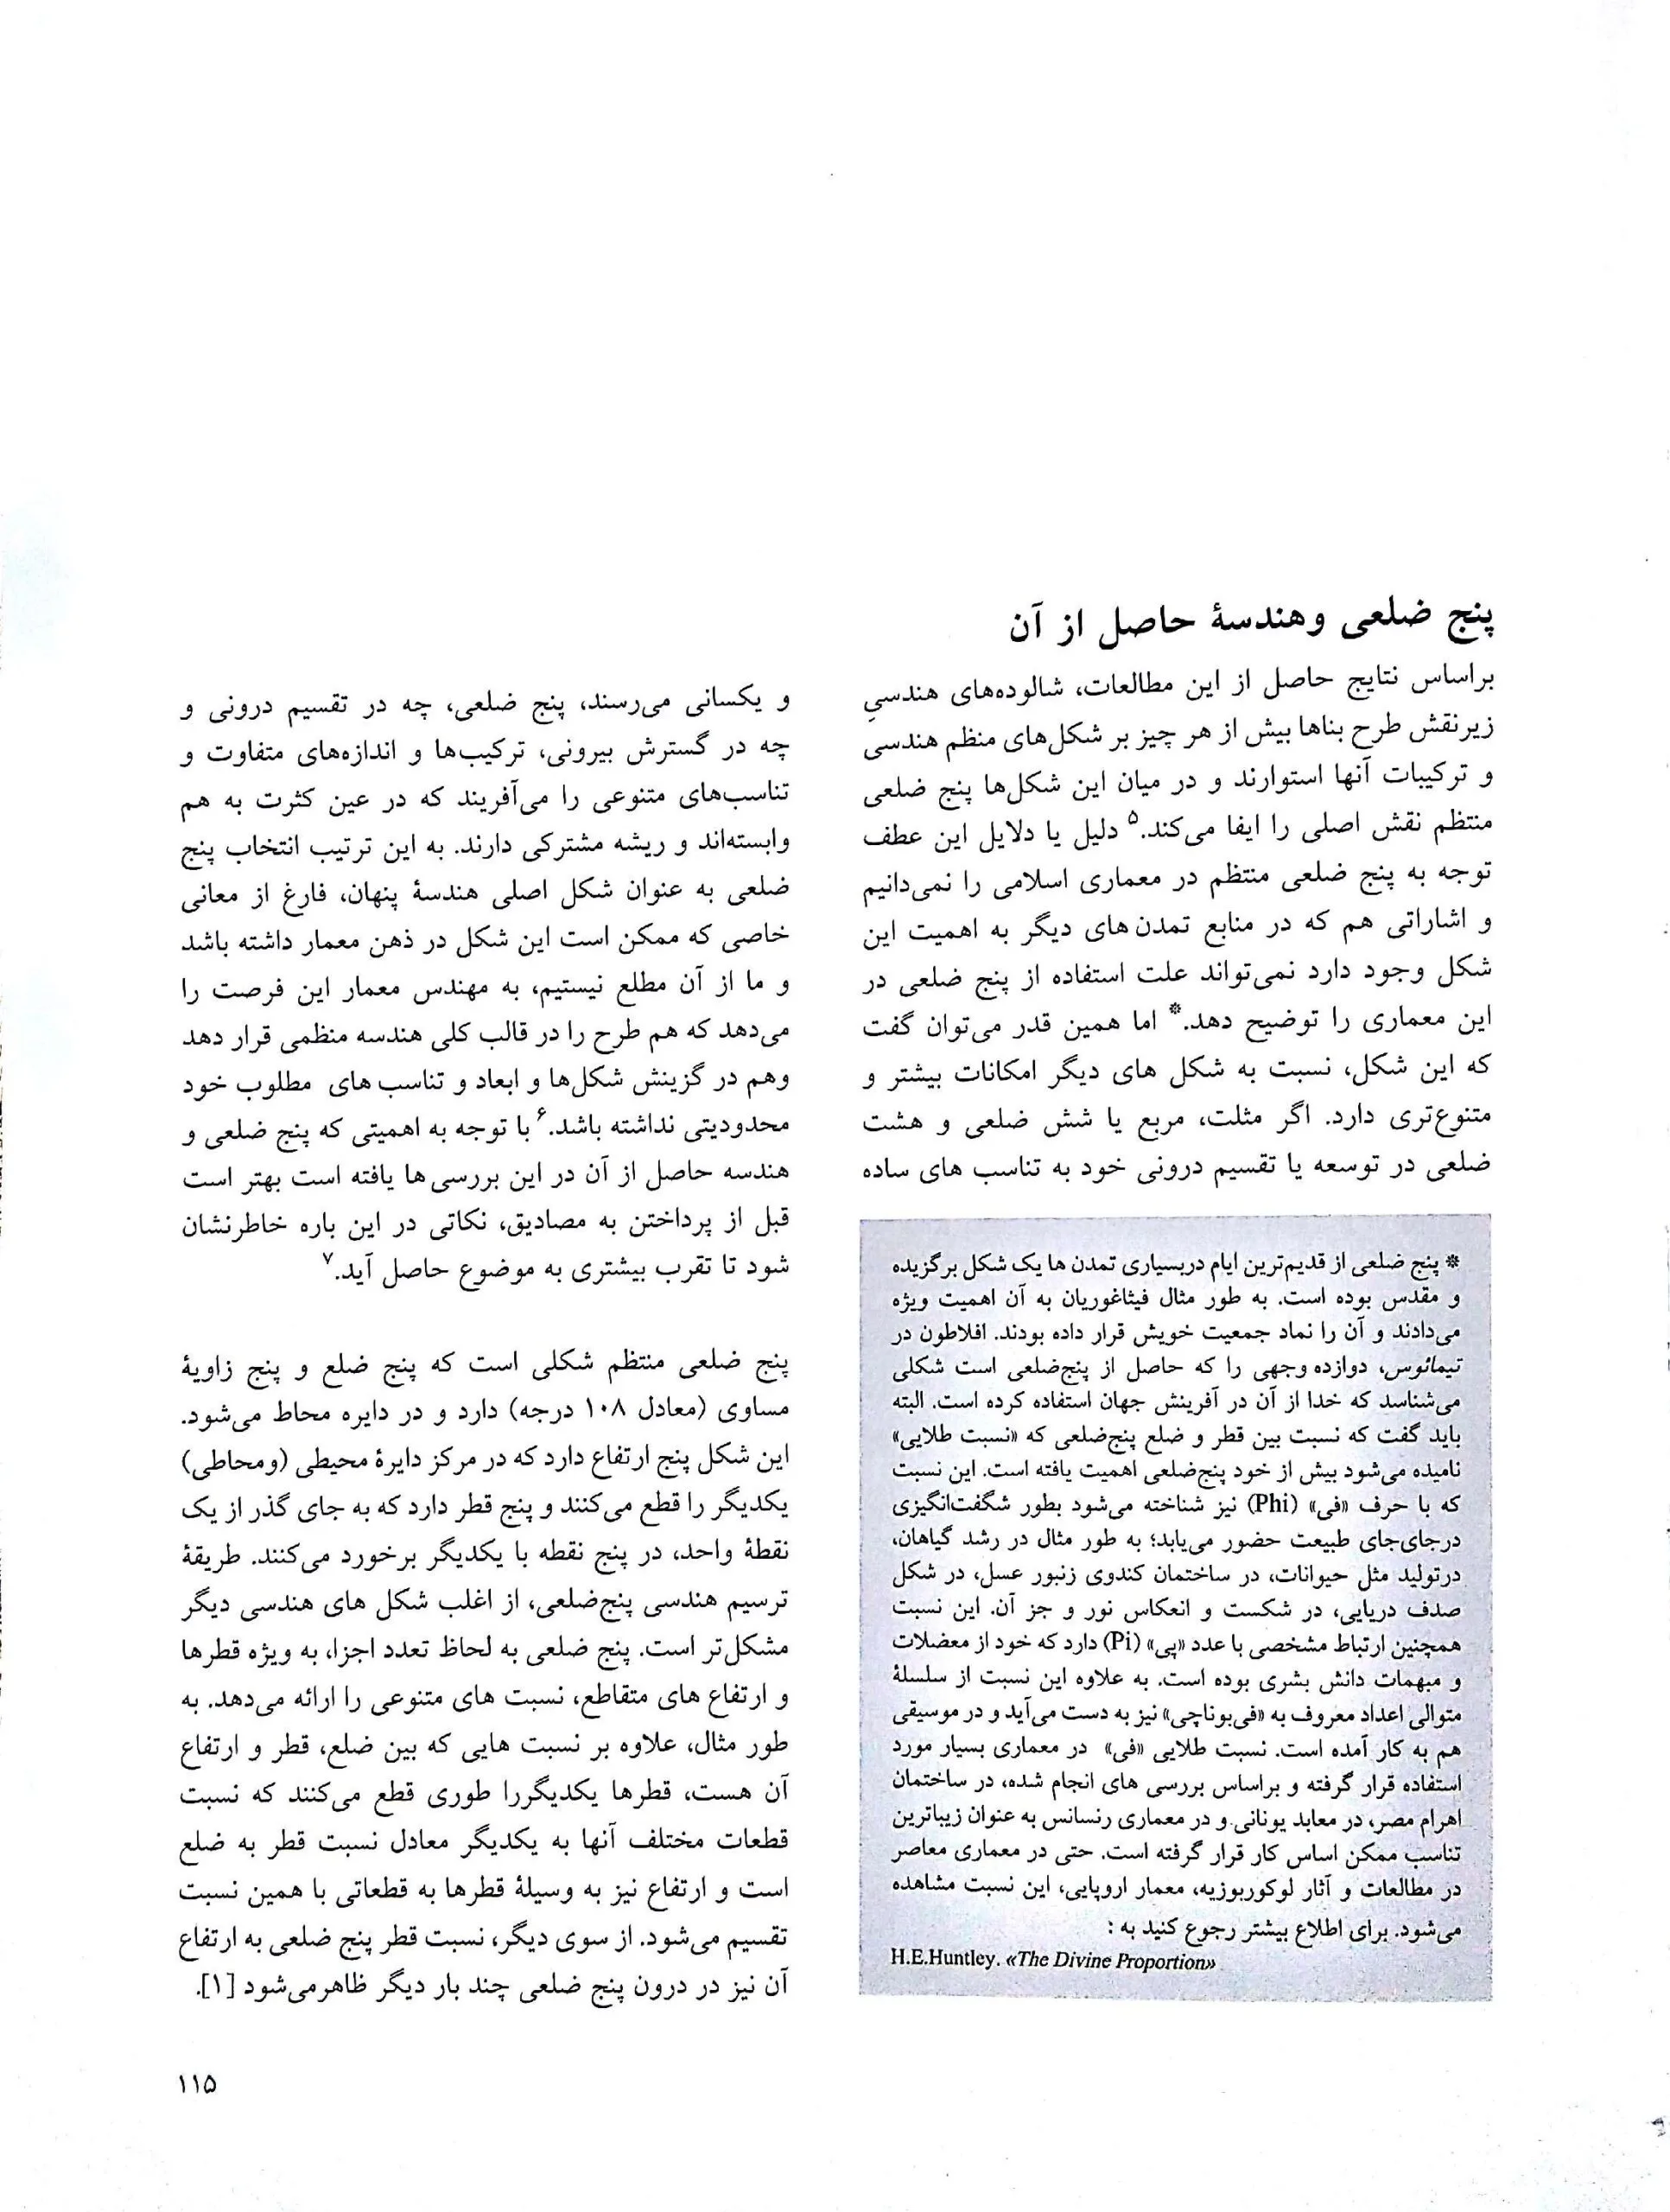 پنج ضلعی وهندسهٔ حاصل از آن
براساس نتایج حاصل از این مطالعات، شالوده‌های هندسیِ
زیرنقش طرح بناها بیش از هر چیز بر شکل‌های منظم هندسی
و ترکیبات آنها استوارند و در میان این شکل‌ها پنج ضلعی
منتظم نقش اصلی را ایفا می‌کند.۵ دلیل یا دلایل این عطف
توجه به پنج ضلعی منتظم در معماری اسلامی را نمی‌دانیم
و اشاراتی هم که در منابع تمدن های دیگر به اهمیت این
شکل وجود دارد نمی‌تواند علت استفاده از پنج ضلعی در
این معماری را توضیح دهد.* اما همین قدر می‌توان گفت
که این شکل، نسبت به شکل های دیگر امکانات بیشتر و
متنوع‌تری دارد. اگر مثلث، مربع یا شش ضلعی و هشت
ضلعی در توسعه یا تقسیم درونی خود به تناسب های ساده
* پنج ضلعی از قدیم‌ترین ایام دربسیاری تمدن ها یک شکل برگزیده
و مقدس بوده است. به طور مثال فیثاغوریان به آن اهمیت ویژه
می‌دادند و آن را نماد جمعیت خویش قرار داده بودند. افلاطون در
تیمائوس، دوازده وجهی را که حاصل از پنج‌ضلعی است شکلی
می‌شناسد که خدا از آن در آفرینش جهان استفاده کرده است. البته
باید گفت که نسبت بین قطر و ضلع پنج‌ضلعی که «نسبت طلایی»
نامیده می‌شود بیش از خود پنج‌ضلعی اهمیت یافته است. این نسبت
که با حرف «فی» (Phi) نیز شناخته می‌شود بطور شگفت‌انگیزی
درجای‌جای طبیعت حضور می‌یابد؛ به طور مثال در رشد گیاهان،
درتولید مثل حیوانات، در ساختمان کندوی زنبور عسل، در شکل
صدف دریایی، در شکست و انعکاس نور و جز آن. این نسبت
همچنین ارتباط مشخصی با عدد «پی» (Pi) دارد که خود از معضلات
و مبهمات دانش بشری بوده است. به علاوه این نسبت از سلسلهٔ
متوالی اعداد معروف به «فی‌بوناچی» نیز به دست می‌آید و در موسیقی
هم به کار آمده است. نسبت طلایی «فی» در معماری بسیار مورد
استفاده قرار گرفته و براساس بررسی های انجام شده، در ساختمان
اهرام مصر، در معابد یونانی و در معماری رنسانس به عنوان زیباترین
تناسب ممکن اساس کار قرار گرفته است. حتی در معماری معاصر
در مطالعات و آثار لوکوربوزیه، معمار اروپایی، این نسبت مشاهده
می‌شود. برای اطلاع بیشتر رجوع کنید به :
H.E.Huntley. «The Divine Proportion»
و یکسانی می‌رسند، پنج ضلعی، چه در تقسیم درونی و
چه در گسترش بیرونی، ترکیب‌ها و اندازه‌های متفاوت و
تناسب‌های متنوعی را می‌آفریند که در عین کثرت به هم
وابسته‌اند و ریشه مشترکی دارند. به این ترتیب انتخاب پنج
ضلعی به عنوان شکل اصلی هندسهٔ پنهان، فارغ از معانی
خاصی که ممکن است این شکل در ذهن معمار داشته باشد
و ما از آن مطلع نیستیم، به مهندس معمار این فرصت را
می‌دهد که هم طرح را در قالب کلی هندسه منظمی قرار دهد
وهم در گزینش شکل‌ها و ابعاد و تناسب های مطلوب خود
محدودیتی نداشته باشد.۶ با توجه به اهمیتی که پنج ضلعی و
هندسه حاصل از آن در این بررسی ها یافته است بهتر است
قبل از پرداختن به مصادیق، نکاتی در این باره خاطرنشان
شود تا تقرب بیشتری به موضوع حاصل آید.۷
پنج ضلعی منتظم شکلی است که پنج ضلع و پنج زاویهٔ
مساوی (معادل ۱۰۸ درجه) دارد و در دایره محاط می‌شود.
این شکل پنج ارتفاع دارد که در مرکز دایرهٔ محیطی (ومحاطی)
یکدیگر را قطع می‌کنند و پنج قطر دارد که به جای گذر از یک
نقطهٔ واحد، در پنج نقطه با یکدیگر برخورد می‌کنند. طریقهٔ
ترسیم هندسی پنج‌ضلعی، از اغلب شکل های هندسی دیگر
مشکل‌تر است. پنج ضلعی به لحاظ تعدد اجزا، به ویژه قطرها
و ارتفاع های متقاطع، نسبت های متنوعی را ارائه می‌دهد. به
طور مثال، علاوه بر نسبت هایی که بین ضلع، قطر و ارتفاع
آن هست، قطرها یکدیگررا طوری قطع می‌کنند که نسبت
قطعات مختلف آنها به یکدیگر معادل نسبت قطر به ضلع
است و ارتفاع نیز به وسیلهٔ قطرها به قطعاتی با همین نسبت
تقسیم می‌شود. از سوی دیگر، نسبت قطر پنج ضلعی به ارتفاع
آن نیز در درون پنج ضلعی چند بار دیگر ظاهرمی‌شود [۱].
۱۱۵